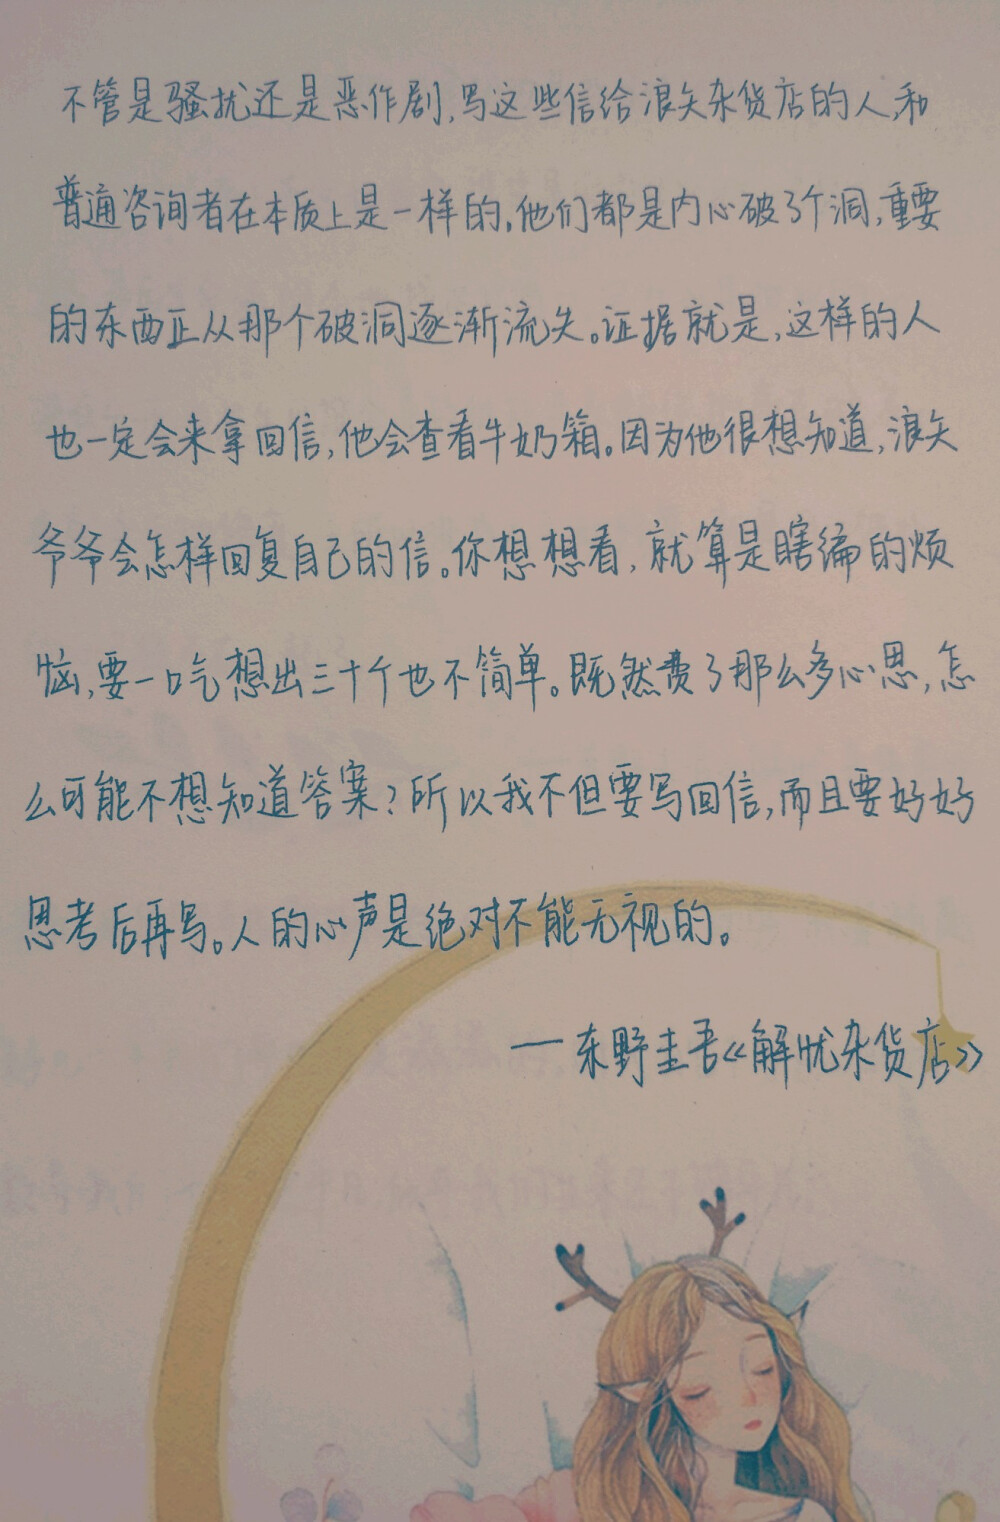 不管是骚扰还是恶作剧,写这些信给浪矢杂货店的人,和
普通咨询者在本质上是一样的。他们都是内心破了个洞,重要
的东西正从那个破洞逐渐流失。证据就是,这样的人
也一定会来拿回信,他会查看牛奶箱。因为他很想知道,浪矢
爷爷会怎样回复自己的信。你想想看,就算是瞎编的烦
恼,要一口气想出三十个也不简单。既然费了那么多心思,怎
么可能不想知道答案?所以我不但要写回信,而且要好好
思考后再写。人的心声是绝对不能无视的。
——东野圭吾《解忧杂货店》